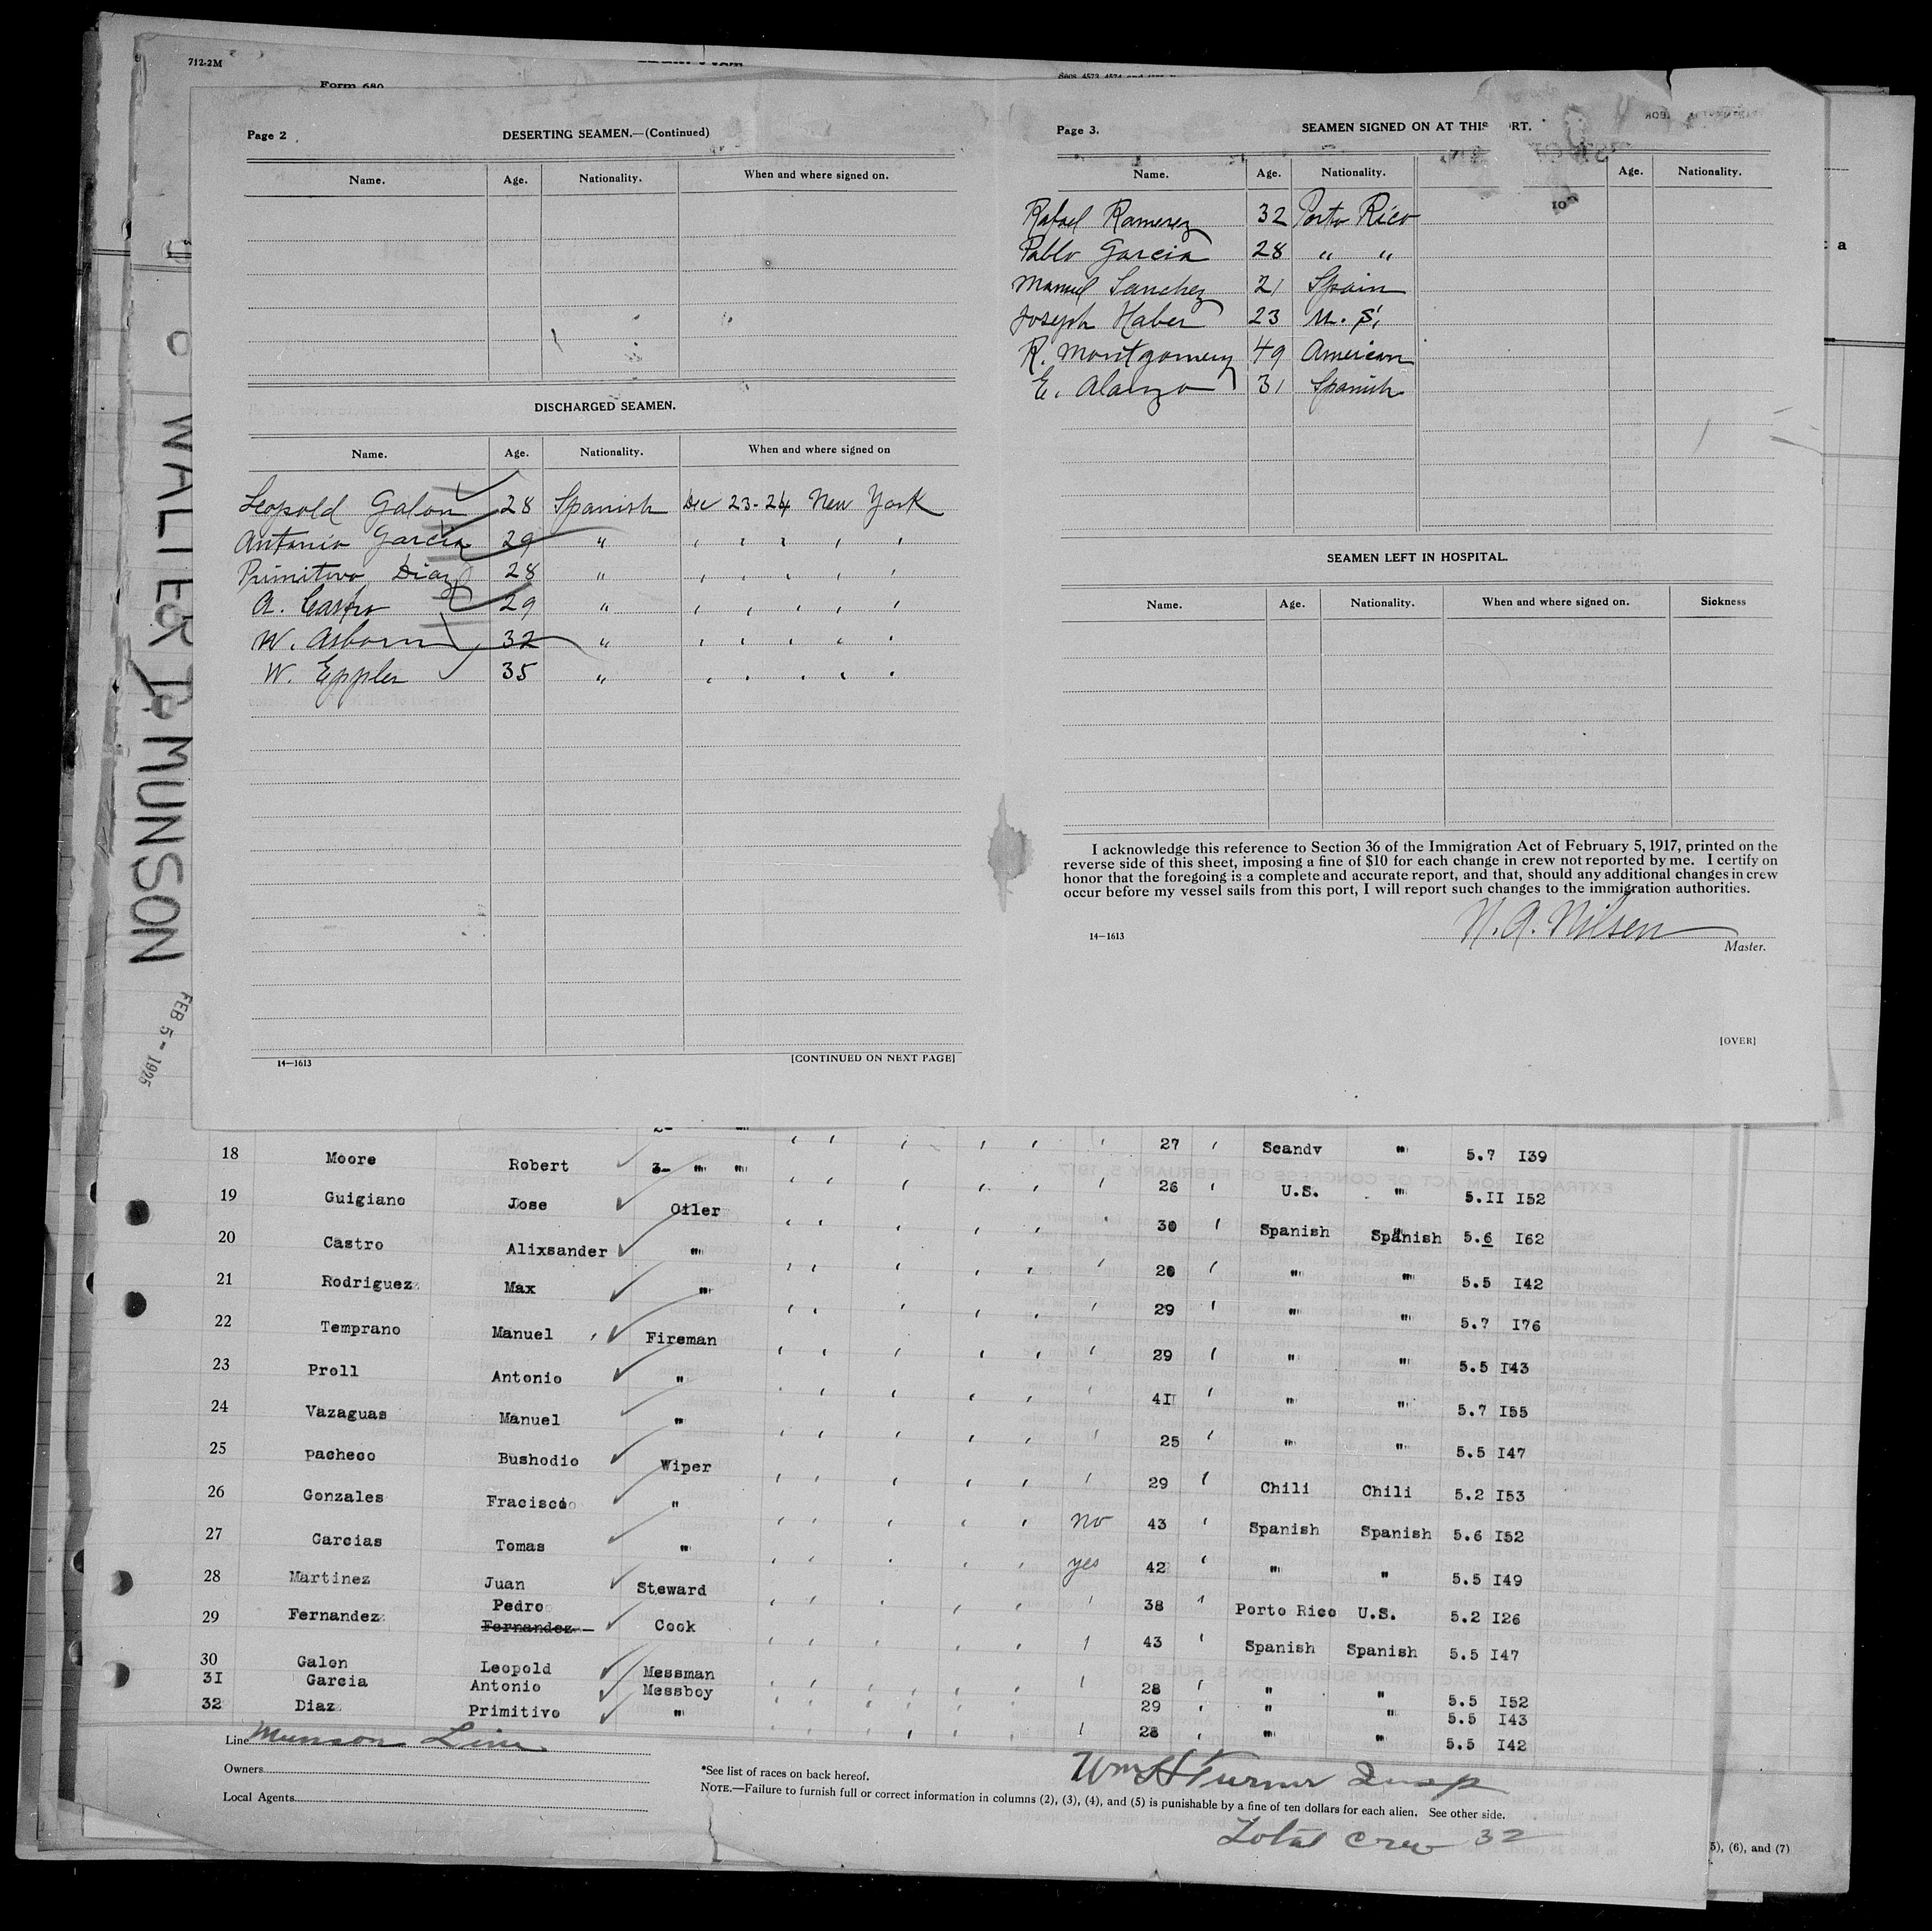 712-2M
Form 680
Page 2
DESERTING SEAMEN.—(Continued)
Name. Age. Nationality. When and where signed on.
DISCHARGED SEAMEN.
Name. Age. Nationality. When and where signed on
Leopold Galon 28 Spanish Dec 23-24 New York
Antonio Garcia 29 " " " " " "
Primitivo Diaz 28 " " " " " "
A. Castro 29 " " " " " "
W. Asborn 32 " " " " " "
W. Eppler 35 " " " " " "
14—1613
[CONTINUED ON NEXT PAGE]
Page 3.
SEAMEN SIGNED ON AT THIS RT.
Name. Age. Nationality. Age. Nationality.
Rafael Ramerez 32 Porto Rico
Pablo Garcia 28 " "
Manuel Sanchez 21 Spain
Joseph Haber 23 U. S.
R. Montgomery 49 American
E. Alanzo 31 Spanish
SEAMEN LEFT IN HOSPITAL.
Name. Age. Nationality. When and where signed on. Sickness
I acknowledge this reference to Section 36 of the Immigration Act of February 5, 1917, printed on the
reverse side of this sheet, imposing a fine of $10 for each change in crew not reported by me. I certify on
honor that the foregoing is a complete and accurate report, and that, should any additional changes in crew
occur before my vessel sails from this port, I will report such changes to the immigration authorities.
N. A. Nilsen
14—1613
Master.
[OVER]
WALTER D MUNSON
FEB 5 - 1925
18 Moore Robert 3- " " 27 Scandv " 5.7 I39
19 Guigiano Jose Oiler 26 U.S. " 5.II I52
20 Castro Alixsander " 30 Spanish Spanish 5.6 I62
21 Rodriguez Max " 20 " " 5.5 I42
22 Temprano Manuel Fireman 29 " " 5.7 I76
23 Proll Antonio " 29 " " 5.5 I43
24 Vazaguas Manuel " 4I " " 5.7 I55
25 pacheco Bushodio Wiper 25 " " 5.5 I47
26 Gonzales Fracisco " 29 Chili Chili 5.2 I53
27 Garcias Tomas " no 43 Spanish Spanish 5.6 I52
28 Martinez Juan Steward yes 42 " " 5.5 I49
29 Fernandez Pedro Fernandez Cook 38 Porto Rico U.S. 5.2 I26
30 Galon Leopold Messman 43 Spanish Spanish 5.5 I47
3I Garcia Antonio Messboy 28 " " 5.5 I52
32 Diaz Primitivo " 29 " " 5.5 I43
28 " " 5.5 I42
Line Munson Line
Owners
Local Agents
*See list of races on back hereof.
Wm H Turner Insp
NOTE.—Failure to furnish full or correct information in columns (2), (3), (4), and (5) is punishable by a fine of ten dollars for each alien. See other side.
Total crew 32
5), (6), and (7)